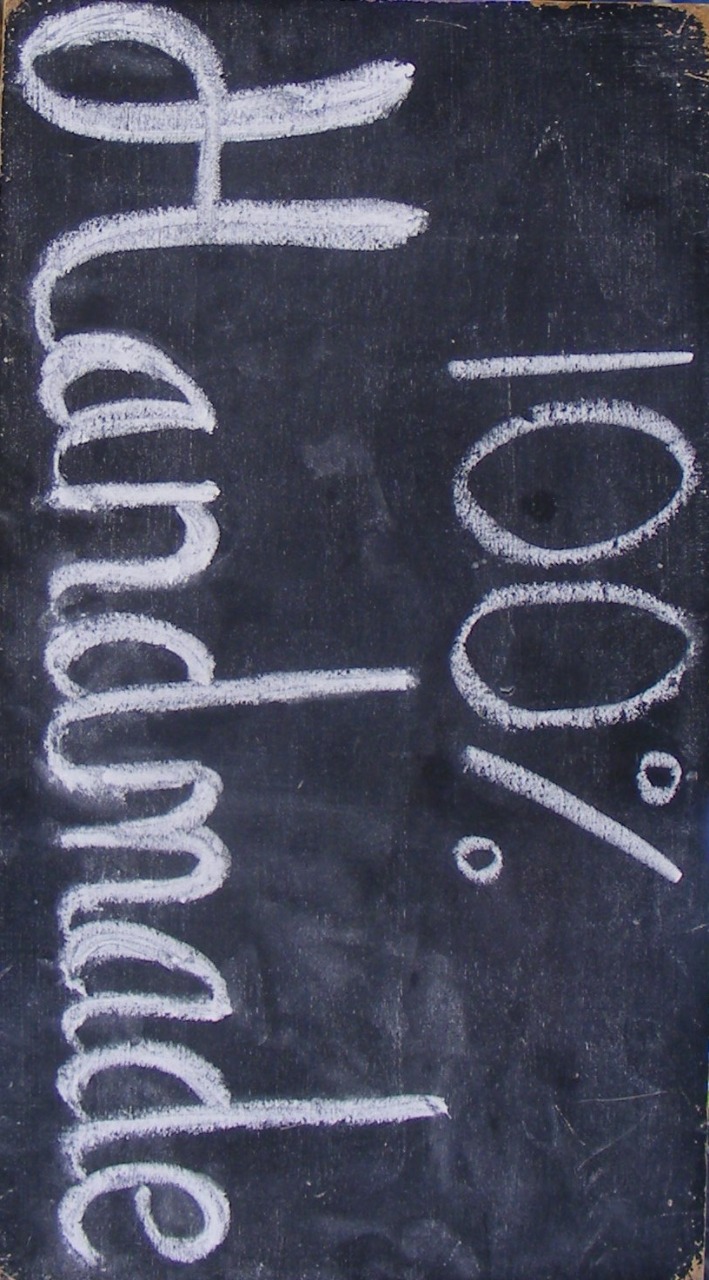 100%
Handmade